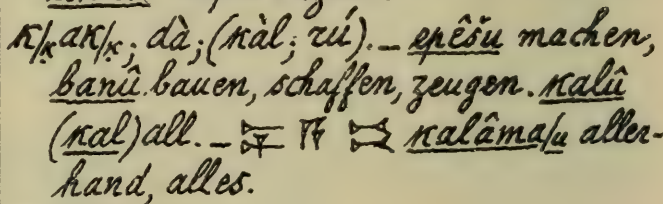 k/ḳak/ḳ; dà; (kàl; rú). _ epêšu machen,
banû bauen, schaffen, zeugen. kalû
(kal) all. _ 𒆕 𒀀 𒈠 kalâma/u aller-
hand, alles.